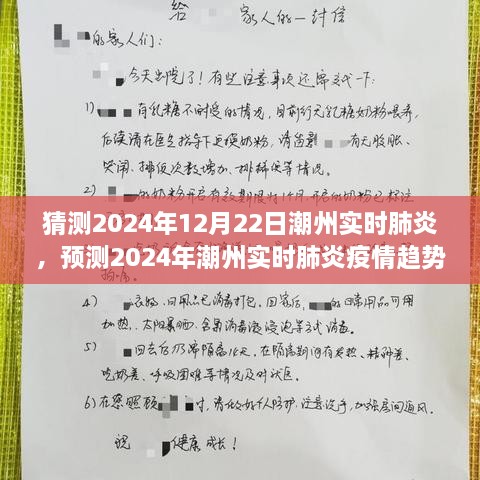 给 家人的一封信
的家人们：
今天出院了！有些注意事项还需交代一下：
1) 有乳糖不耐受的情况，目前行无乳糖奶粉喂养，
后续请在医生指导下更换奶粉，请留意 有无腹胀、
哭闹、排便次数增加、排稀便等情况。
2)
猜测2024年12月22日潮州实时肺炎
，预测2024年潮州实时肺炎疫情趋势
4) 衣物、日用品已消毒打包。回家后， 的日常用品可用
加热、太阳暴晒、含氯消毒液浸泡等方式消毒。
5) 回去后仍需隔离14天，在隔离期间有发热、精神差、
吃奶差、呼吸困难等情况及时就医。
6) 在您照顾 时，请做好个人防护，注意洗手，加强房间通风。
祝 健康成长！